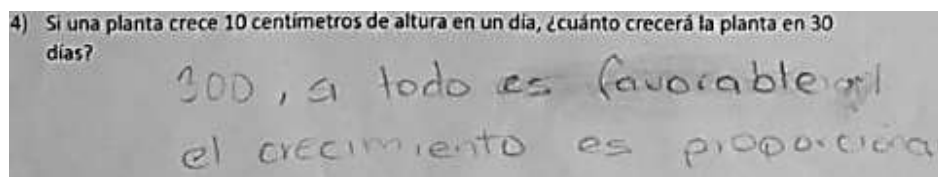 4) Si una planta crece 10 centímetros de altura en un día, ¿cuánto crecerá la planta en 30
días?
300, si todo es favorable
el crecimiento es proporciona